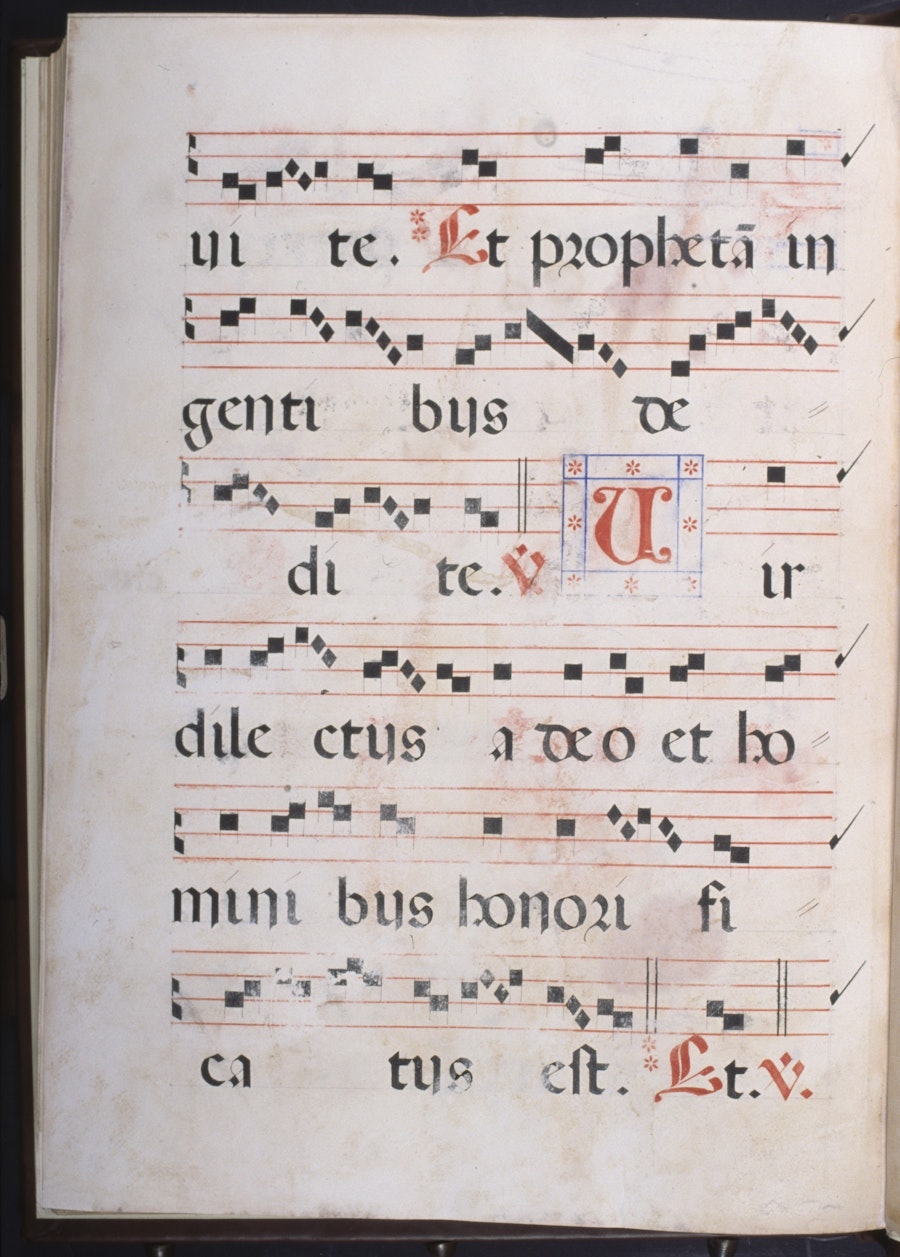 ui te. Et prophetā in
genti bus de
di te. ℣ Uir
dile ctus a deo et ho
mini bus honori fi
ca tus est. Et. ℣.